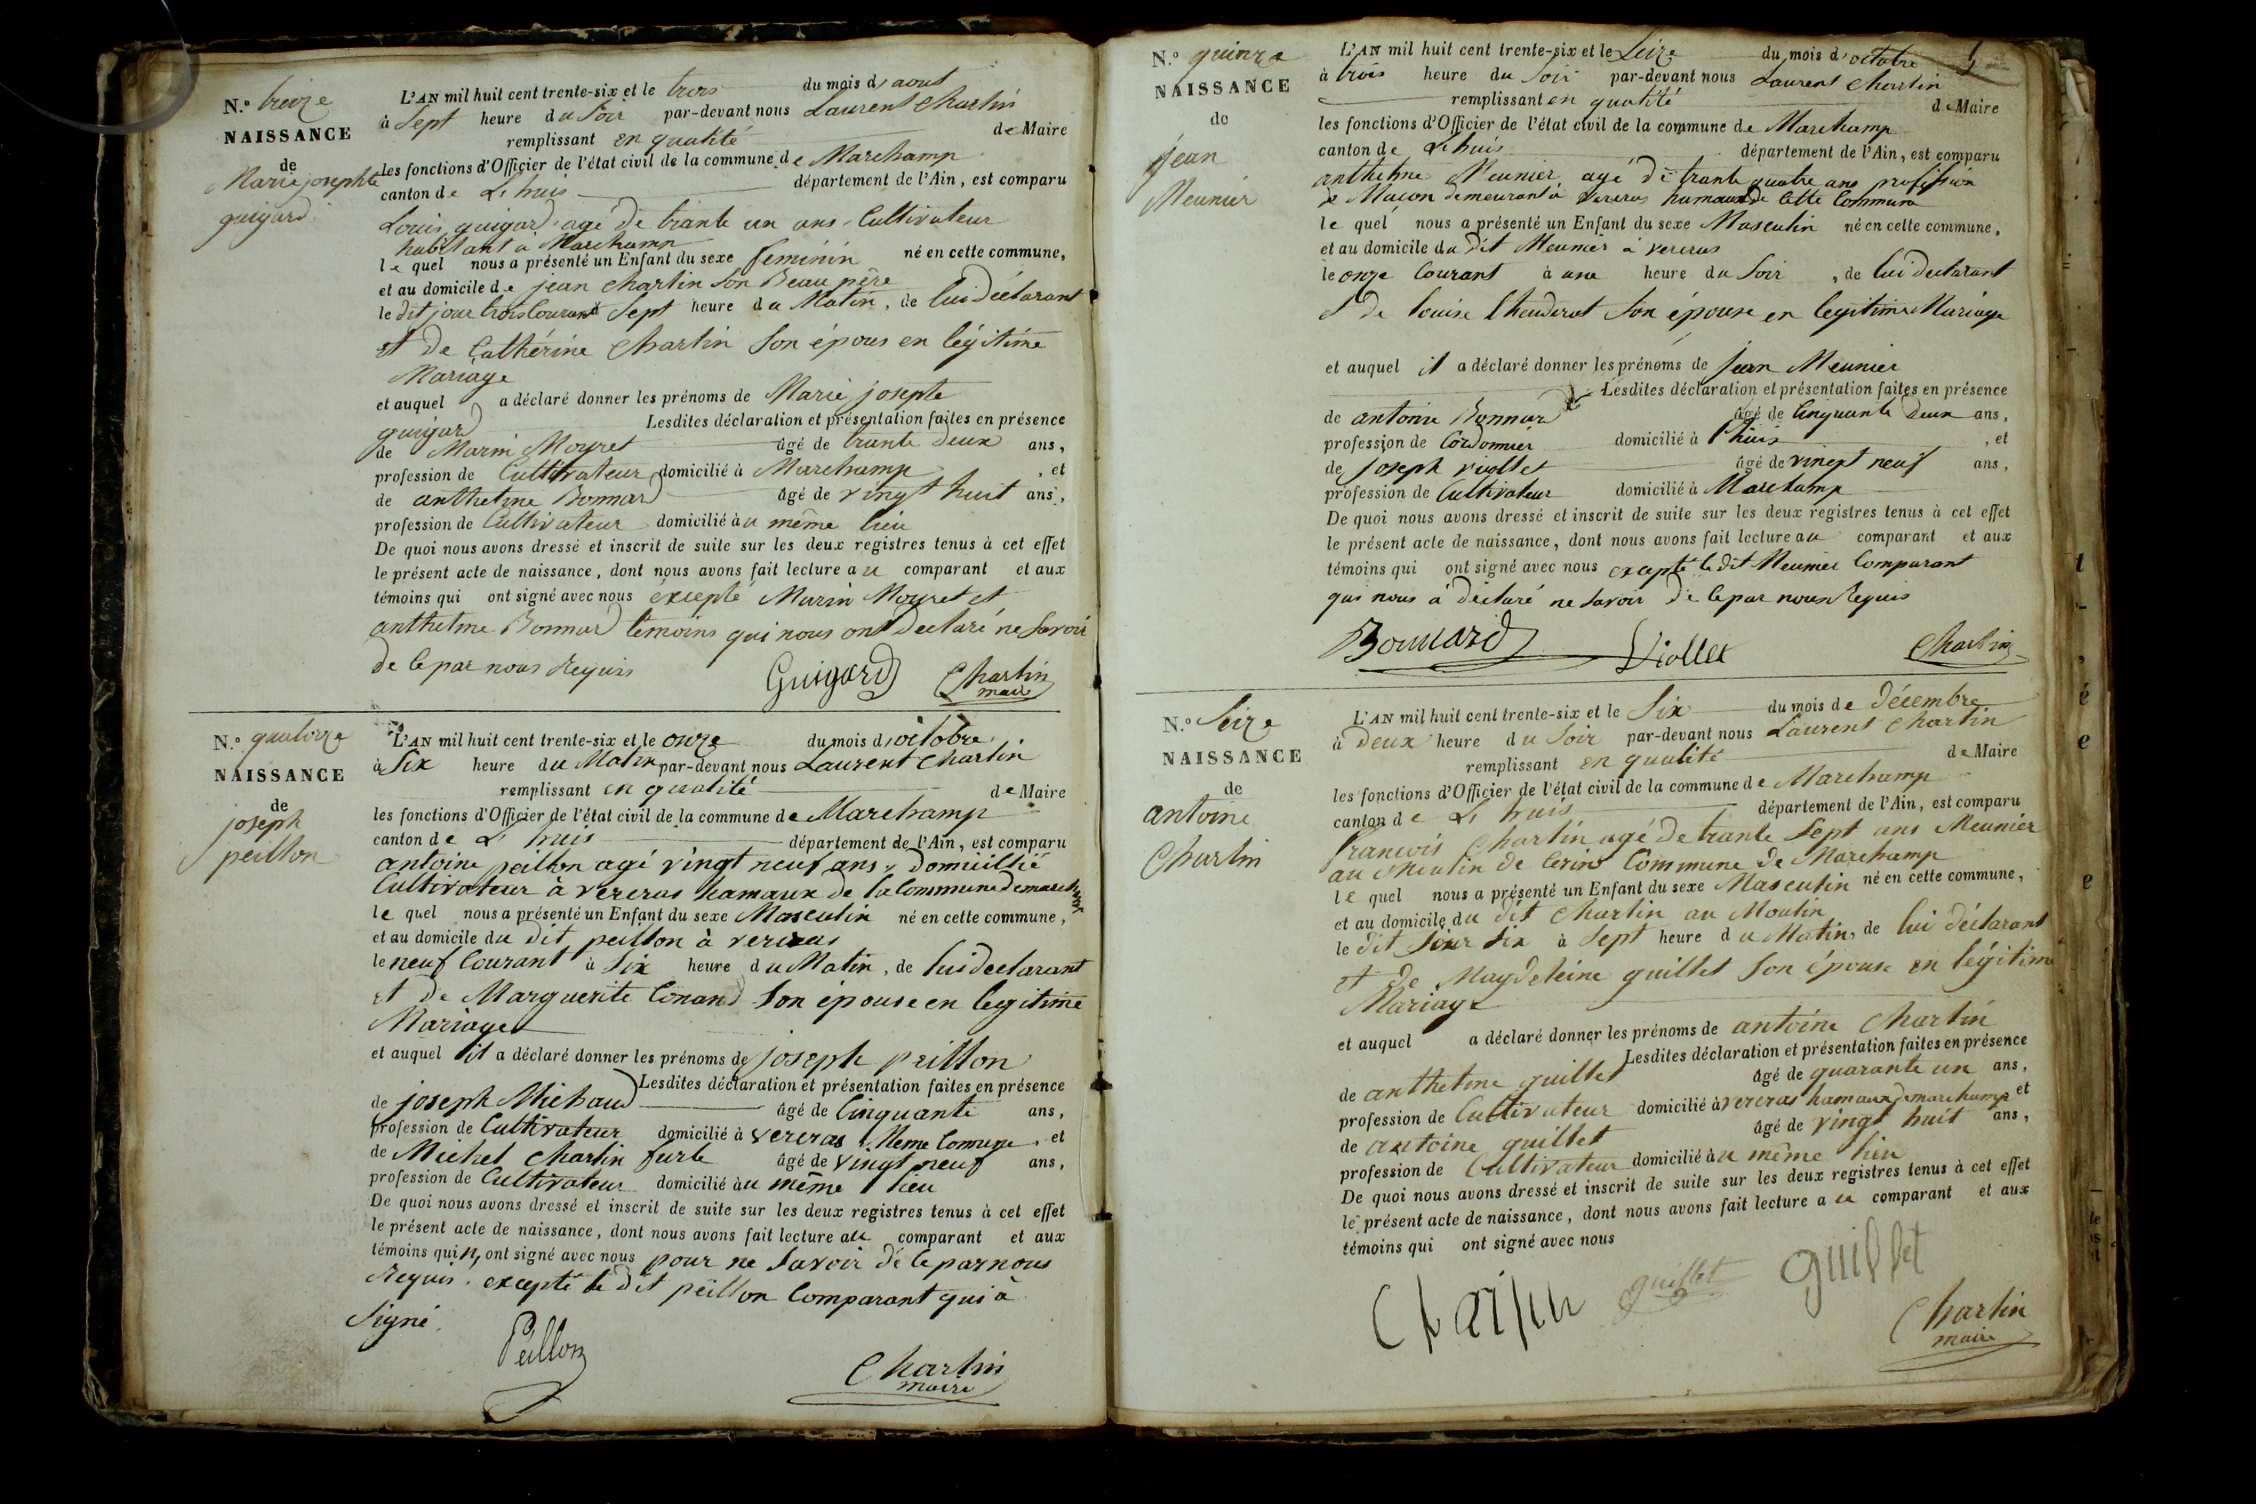 N.º treize
NAISSANCE
de
Marie josephte
guigard
L'AN mil huit cent trente-six et le trois du mois d'aout
à Sept heure du Soir par-devant nous Laurent Charlin
remplissant en qualité de Maire
les fonctions d'Officier de l'état civil de la commune de Marchamp
canton de L'huis département de l'Ain, est comparu
Louis guigard agé de trante un ans Cultivateur
habitant à Marchamp
le quel nous a présenté un Enfant du sexe feminin né en cette commune,
et au domicile de jean Charlin Son Beau père
le dit jour trois Courant Sept heure du Matin, de lui Déclarant
et de Cathérine Charlin Son épous en légitime
Mariage
et auquel a déclaré donner les prénoms de Marie josepte
guigard Lesdites déclaration et présentation faites en présence
de Marin Moyret âgé de trante deux ans,
profession de Cultivateur domicilié à Marchamp, et
de anthelme Bonnard âgé de vingt huit ans,
profession de Cultivateur domicilié au même lieu
De quoi nous avons dressé et inscrit de suite sur les deux registres tenus à cet effet
le présent acte de naissance, dont nous avons fait lecture au comparant et aux
témoins qui ont signé avec nous éxcepté Marin Moyret et
anthelme Bonnard témoins qui nous ont declaré ne Savoir
de Ce par nous Requis
Guigard Charlin
maire
N.º quatorze
NAISSANCE
de
joseph
peillon
L'AN mil huit cent trente-six et le onze du mois d'octobre
à Six heure du Matin par-devant nous Laurent Charlin
remplissant en qualité de Maire
les fonctions d'Officier de l'état civil de la commune de Marchamp
canton de L'huis département de l'Ain, est comparu
antoine peillon agé vingt neuf ans, domicillié
Cultivateur à vereras hamaux de la Commune De marchamp
le quel nous a présenté un Enfant du sexe Masculin né en cette commune,
et au domicile du dit peillon à vereras
le neuf Courant à Six heure du Matin, de lui declarant
et de Marguerite Conand Son épouse en legitime
Mariage
et auquel il a déclaré donner les prénoms de joseph peillon
Lesdites déclaration et présentation faites en présence
de joseph Michaud âgé de Cinquante ans,
profession de Cultivateur domicilié à vereras Même Comune, et
de Michel Charlin furle âgé de vingt neuf ans,
profession de Cultivateur domicilié au même lieu
De quoi nous avons dressé et inscrit de suite sur les deux registres tenus à cet effet
le présent acte de naissance, dont nous avons fait lecture au comparant et aux
témoins qui n, ont signé avec nous pour ne Savoir de Ce par nous
Requis. excepté le dit peillon Comparant qui à
Signé.
Peillon Charlin
maire
N.º quinze
NAISSANCE
de
jean
Meunier
L'AN mil huit cent trente-six et le Seize du mois d'octobre
à trois heure du Soir par-devant nous Laurent Charlin
remplissant en qualité de Maire
les fonctions d'Officier de l'état civil de la commune de Marchamp
canton de L'huis département de l'Ain, est comparu
anthelme Meunier agé de trante quatre ans profession
de Maçon demeurant à vereras hamaux de Cette Commune
le quel nous a présenté un Enfant du sexe Masculin né en cette commune,
et au domicile du Dit Meunier à vereras
le onze Courant à une heure du Soir, de lui declarant
et de louise Chenderot Son épouse en legitime Mariage
et auquel il a déclaré donner les prénoms de jean Meunier
Lesdites déclaration et présentation faites en présence
de antoine Bonnard âgé de Cinquante Deux ans,
profession de Cordonnier domicilié à l'huis, et
de joseph viollet âgé de vinept neuf ans,
profession de Cultivateur domicilié à Marchamp
De quoi nous avons dressé et inscrit de suite sur les deux registres tenus à cet effet
le présent acte de naissance, dont nous avons fait lecture au comparant et aux
témoins qui ont signé avec nous excepté le dit Meunier Comparant
qui nous à déclaré ne Savoir de Ce par nous Requis
Bonnard Viollet Charlin
N.º Seize
NAISSANCE
de
antoine
Charlin
L'AN mil huit cent trente-six et le Six du mois de Décembre
à Deux heure du Soir par-devant nous Laurent Charlin
remplissant en qualité de Maire
les fonctions d'Officier de l'état civil de la commune de Marchamp
canton de L'huis département de l'Ain, est comparu
francois Charlin agé de trante Sept ans Meunier
au Moulin de Cerin Commune de Marchamp
le quel nous a présenté un Enfant du sexe Masculin né en cette commune,
et au domicile du dit Charlin au Moulin
le dit jour Six à Sept heure du Matin, de lui déclarant
et de Maydeleine guillet Son épouse en légitime
Mariage
et auquel a déclaré donner les prénoms de antoine Charlin
Lesdites déclaration et présentation faites en présence
de anthelme guillet âgé de quarante un ans,
profession de Cultivateur domicilié à vereras hamaux de marchamp et
de antoine guillet âgé de vingt huit ans,
profession de Cultivateur domicilié au même lieu
De quoi nous avons dressé et inscrit de suite sur les deux registres tenus à cet effet
le présent acte de naissance, dont nous avons fait lecture au comparant et aux
témoins qui ont signé avec nous
Charlin guillet guillet
Charlin
maire